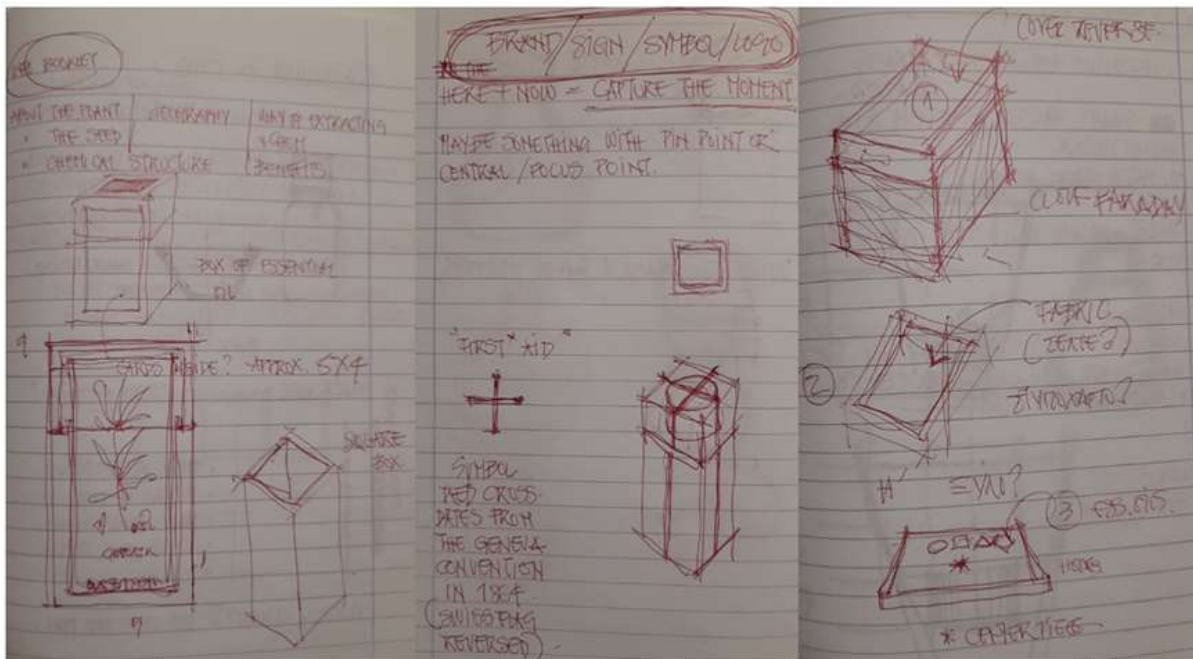 THE BOOKLET
ABOUT THE PLANT
GEOGRAPHY
WAY OF EXTRACTING
• THE SEED
• CHEMICAL STRUCTURE
BENEFITS
BOX OF ESSENTIAL
OIL
CARDS INSIDE? APPROX. 5X4
SQUARE
BOX
BRAND/SIGN/SYMBOL/LOGO
HERE + NOW = CAPTURE THE MOMENT
MAYBE SOMETHING WITH PIN POINT OR
CENTRAL/FOCUS POINT.
"FIRST" AID"
SYMBOL
RED CROSS
DATES FROM
THE GENEVA
CONVENTION
IN 1864
(SWISS FLAG
REVERSED)
COVER REVERSE.
1
FABRIC
2
3
* CENTER PIECE